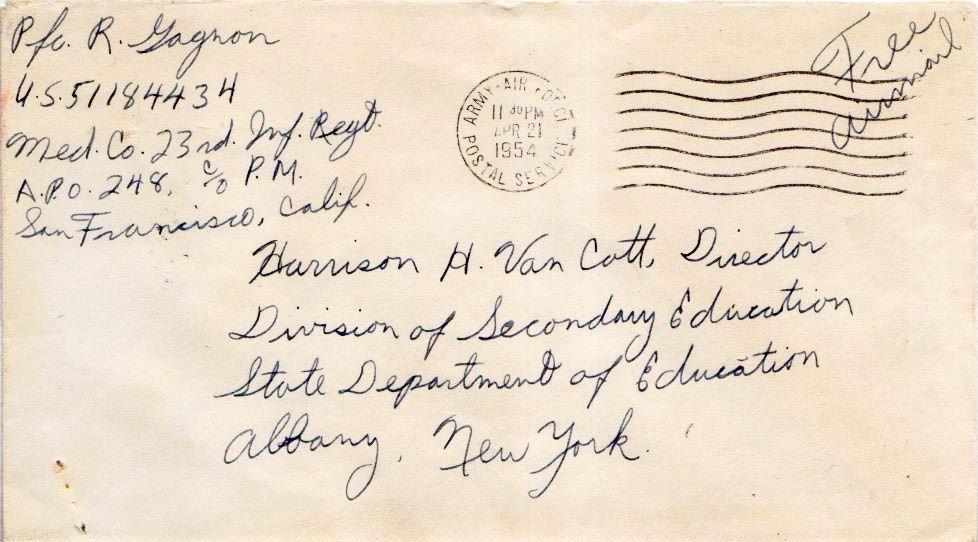 Pfc. R. Gagnon
U.S.51184434
Med. Co. 23rd. Inf. Regt.
A.P.O. 248, c/o P.M.
San Francisco, Calif.
ARMY-AIR FORCE
POSTAL SERVICE
11 30 PM
APR 21
1954
Free
airmail
Harrison H. Van Cott, Director
Division of Secondary Education
State Department of Education
Albany, New York.